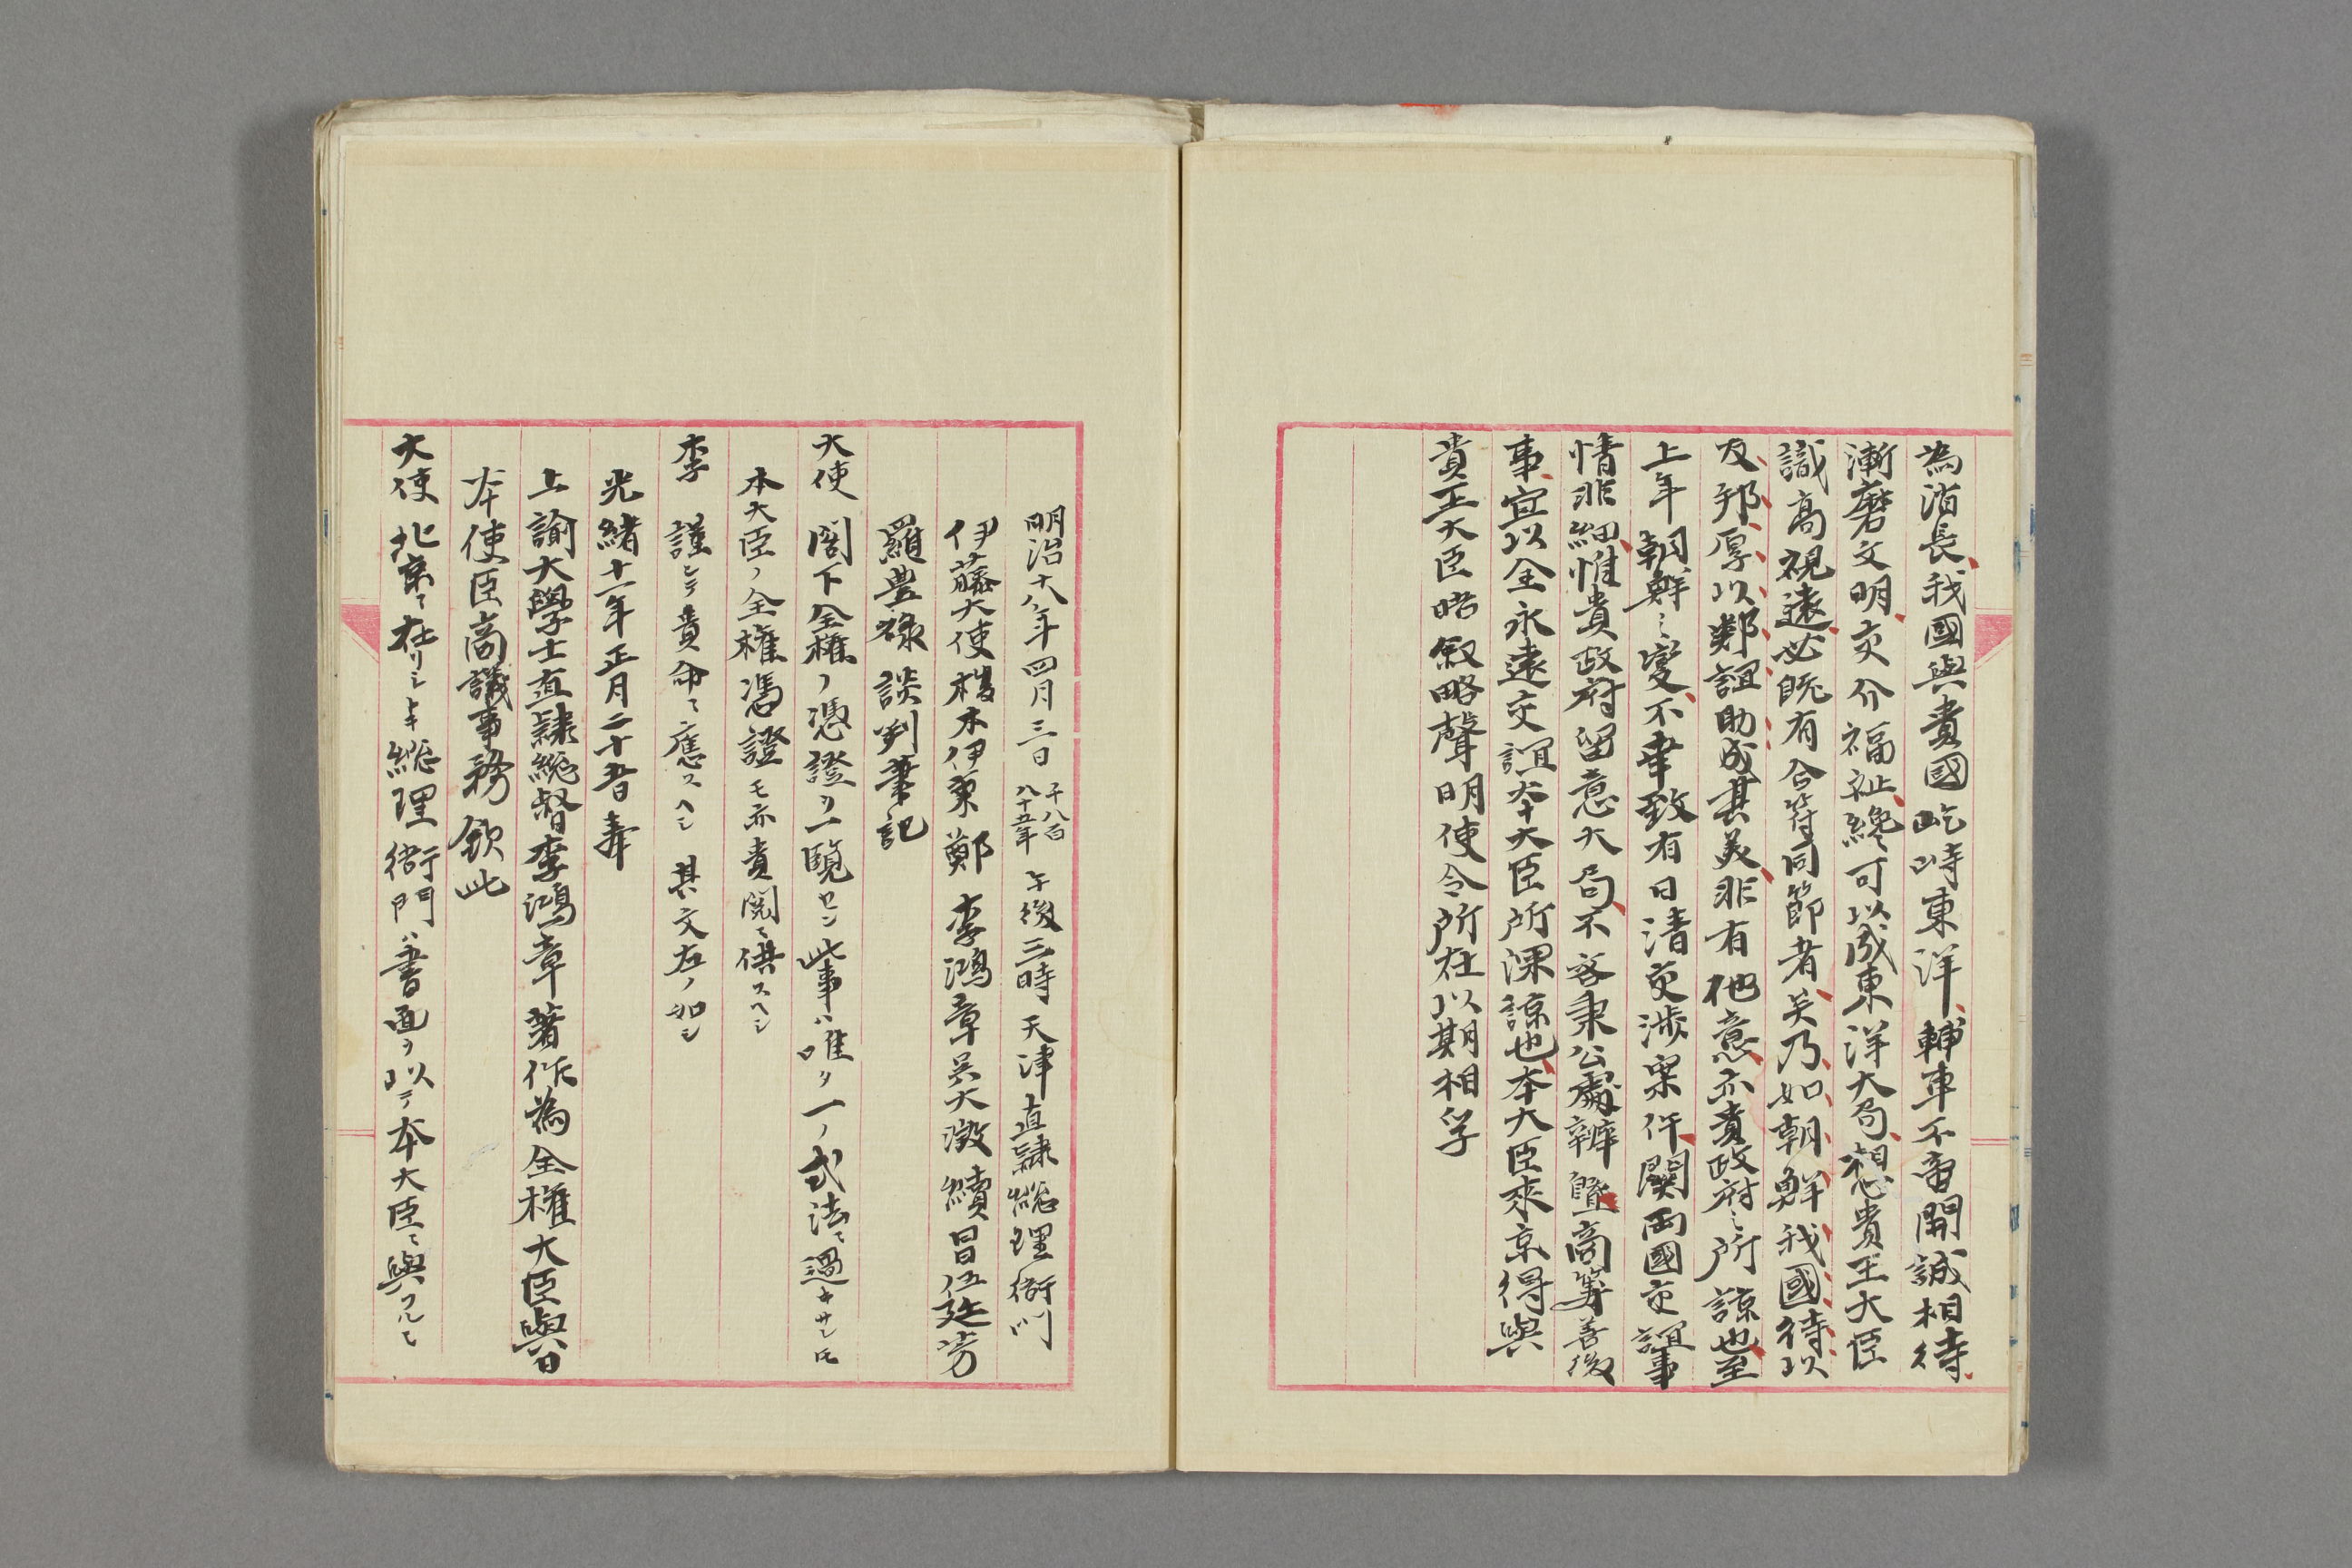 為消長、我國與貴國屹峙東洋、輔車不啻開誠相待、
漸磨文明、交介福祉、纔可以成東洋大局、想貴王大臣
識高視遠、必既有合符同節者矣、乃如朝鮮、我國待以
友邦、厚以鄰誼、助成甚美、非有他意、亦貴政府之所諒也、至
上年朝鮮之變、不幸致有日清交渉案件、關両國交誼事
情非細、惟貴政府留意大局、不吝秉公處辦、曁商籌善後
事、宜以全永遠交誼、本大臣所深諒也、本大臣來京得與
貴王大臣晤敍略聲明使令所在以期相孚
明治十八年四月三日千八百八十五年午後三時天津直隷総理衙門
伊藤大使榎本伊東鄭李鴻章呉大澂續昌伍廷芳
羅豊禄談判筆記
大使 閣下全権ノ憑證ヲ一覧セン此事ハ唯タ一ノ式法ニ過キサレ𪜈
本大臣ノ全権憑證モ亦貴閲ニ供スヘシ
李 謹シテ貴命ニ應スヘシ其文左ノ如シ
光緒十一年正月二十五日奉
上諭大學士直隷総督李鴻章著作為全権大臣與日
本使臣商議事務欽此
大使 北京ニ在リシトキ総理衙門ハ書面ヲ以テ本大臣ニ與フルモ